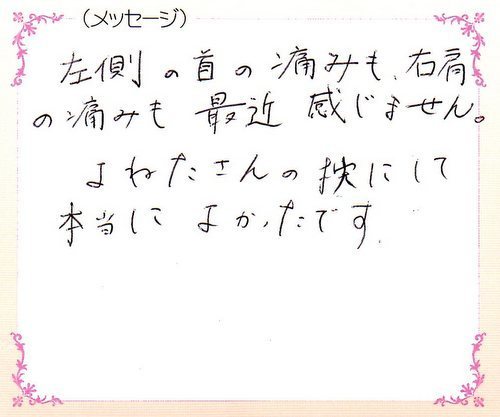 (メッセージ)
左側の首の痛みも、右肩
の痛みも 最近 感じません。
よねたさんの枕にして
本当に よかったです.